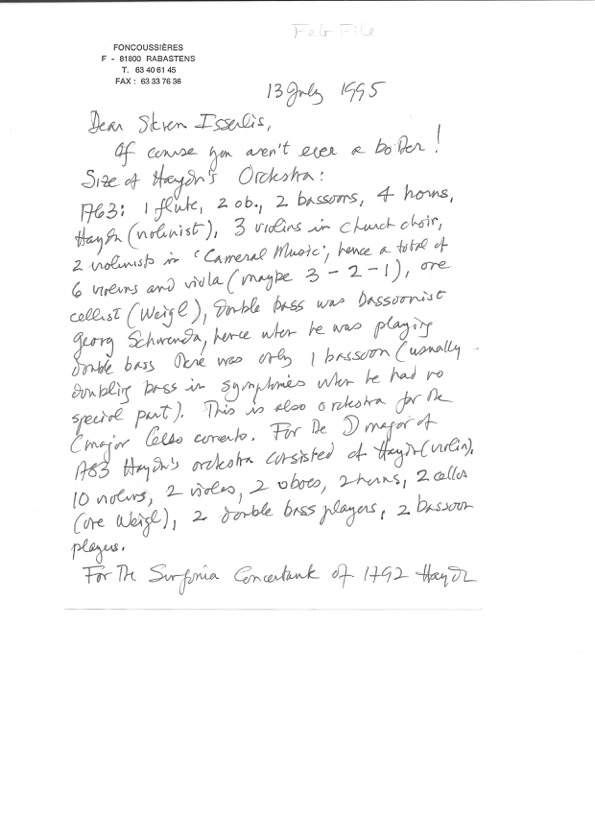 Feb File
FONCOUSSIÈRES
F - 81800 RABASTENS
T. 63 40 61 45
FAX : 63 33 76 36
13 July 1995
Dear Steven Isserlis,
Of course you aren't ever a bother!
Size of Haydn's Orchestra:
1763: 1 flute, 2 ob., 2 bassoons, 4 horns,
Haydn (violinist), 3 violins in church choir,
2 violinists in 'Cameral Music', hence a total of
6 violins and viola (maybe 3 - 2 - 1), one
cellist (Weigl), double bass was bassoonist
Georg Schwenda, hence when he was playing
double bass there was only 1 bassoon (usually
doubling bass in symphonies when he had no
special part). This is also orchestra for the
C major Cello concerto. For the D major of
1783 Haydn's orchestra consisted of Haydn (violin),
10 violins, 2 violas, 2 oboes, 2 horns, 2 cellos
(one Weigl), 2 double bass players, 2 bassoon
players.
For the Sinfonia Concertante of 1792 Haydn